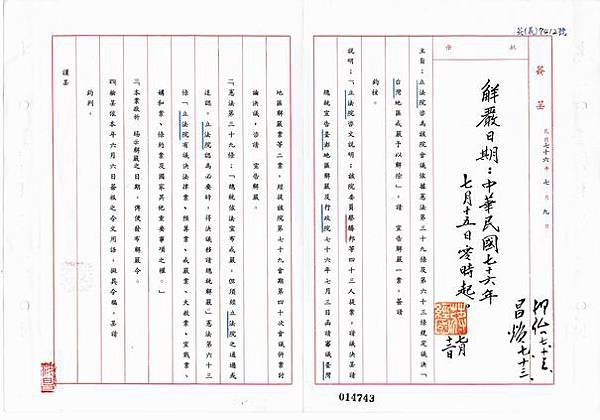 7412號
簽呈
民國七十六年七月九日
批示
解嚴日期：中華民國七十六年
七月十五日零時起。
主旨：立法院咨為該院會議依據憲法第三十九條及第六十三條規定議決「
台灣地區戒嚴予以解除」，請　宣告解嚴一案，簽請
鈞核。
說明：一、立法院咨文說明：該院委員蔡勝邦等四十三人提案，請議決呈請
總統宣告臺灣地區解嚴及行政院七十六年七月三日函請審議臺灣
014743
地區解嚴案等二案，經提該院第七十九會期第四十次會議併案討
論決議，咨請　宣告解嚴。
二、憲法第三十九條：「總統依法宣布戒嚴，但須經立法院之通過或
追認。立法院認為必要時，得決議移請總統解嚴」憲法第六十三
條「立法院有議決法律案、預算案、戒嚴案、大赦案、宣戰案、
媾和案、條約案及國家其他重要事項之權。」
三、本案敬祈　賜示解嚴之日期，俾便發布解嚴令。
四、檢呈依本年六月六日簽報之令文用語，擬具令稿，呈請
鈞判。
謹呈